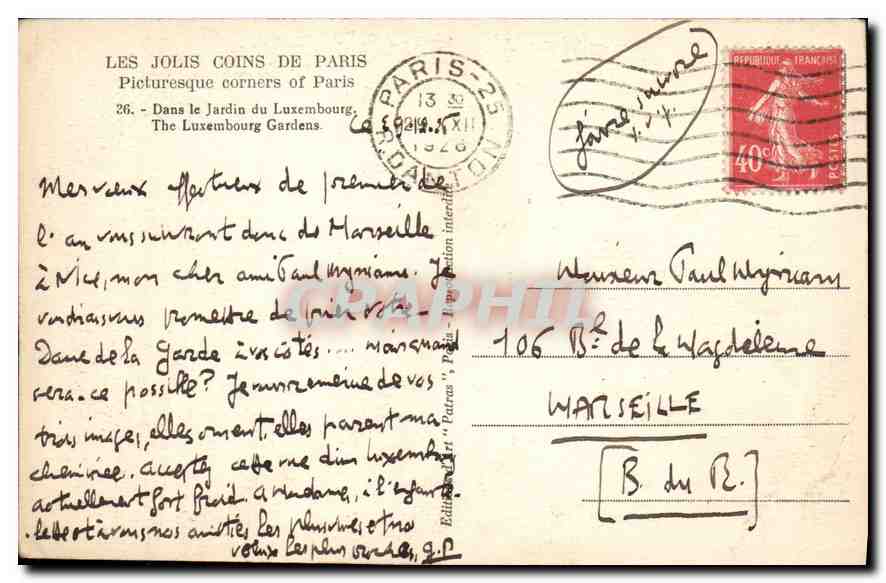 LES JOLIS COINS DE PARIS
Picturesque corners of Paris
26. - Dans le Jardin du Luxembourg.
The Luxembourg Gardens.
PARIS-25
13 30
XII
1928
R. DANTON
faire suivre
s.v.p.
REPUBLIQUE FRANÇAISE
40c
POSTES
Mes vœux affectueux de premier de
l'an vous suivront donc de Marseille
à Nice, mon cher ami Paul Myriam. Je
voudrais vous promettre de prier Notre-
Dame de la Garde à vos côtés.... mais quand
sera-ce possible? Je vous remercie de vos
trois images, elles ornent, elles parent ma
cheminée. Acceptez cette vue d'un Luxembourg
actuellement fort froid. A Madame, à l'enfant-
et à vous nos amitiés les plus vives et nos
vœux les plus g.p
Edition d'Art "Patras", Paris - Reproduction interdite
CPAPHIL
Monsieur Paul Myriam
106 Bd de la Magdeleine
MARSEILLE
[B. du R.]